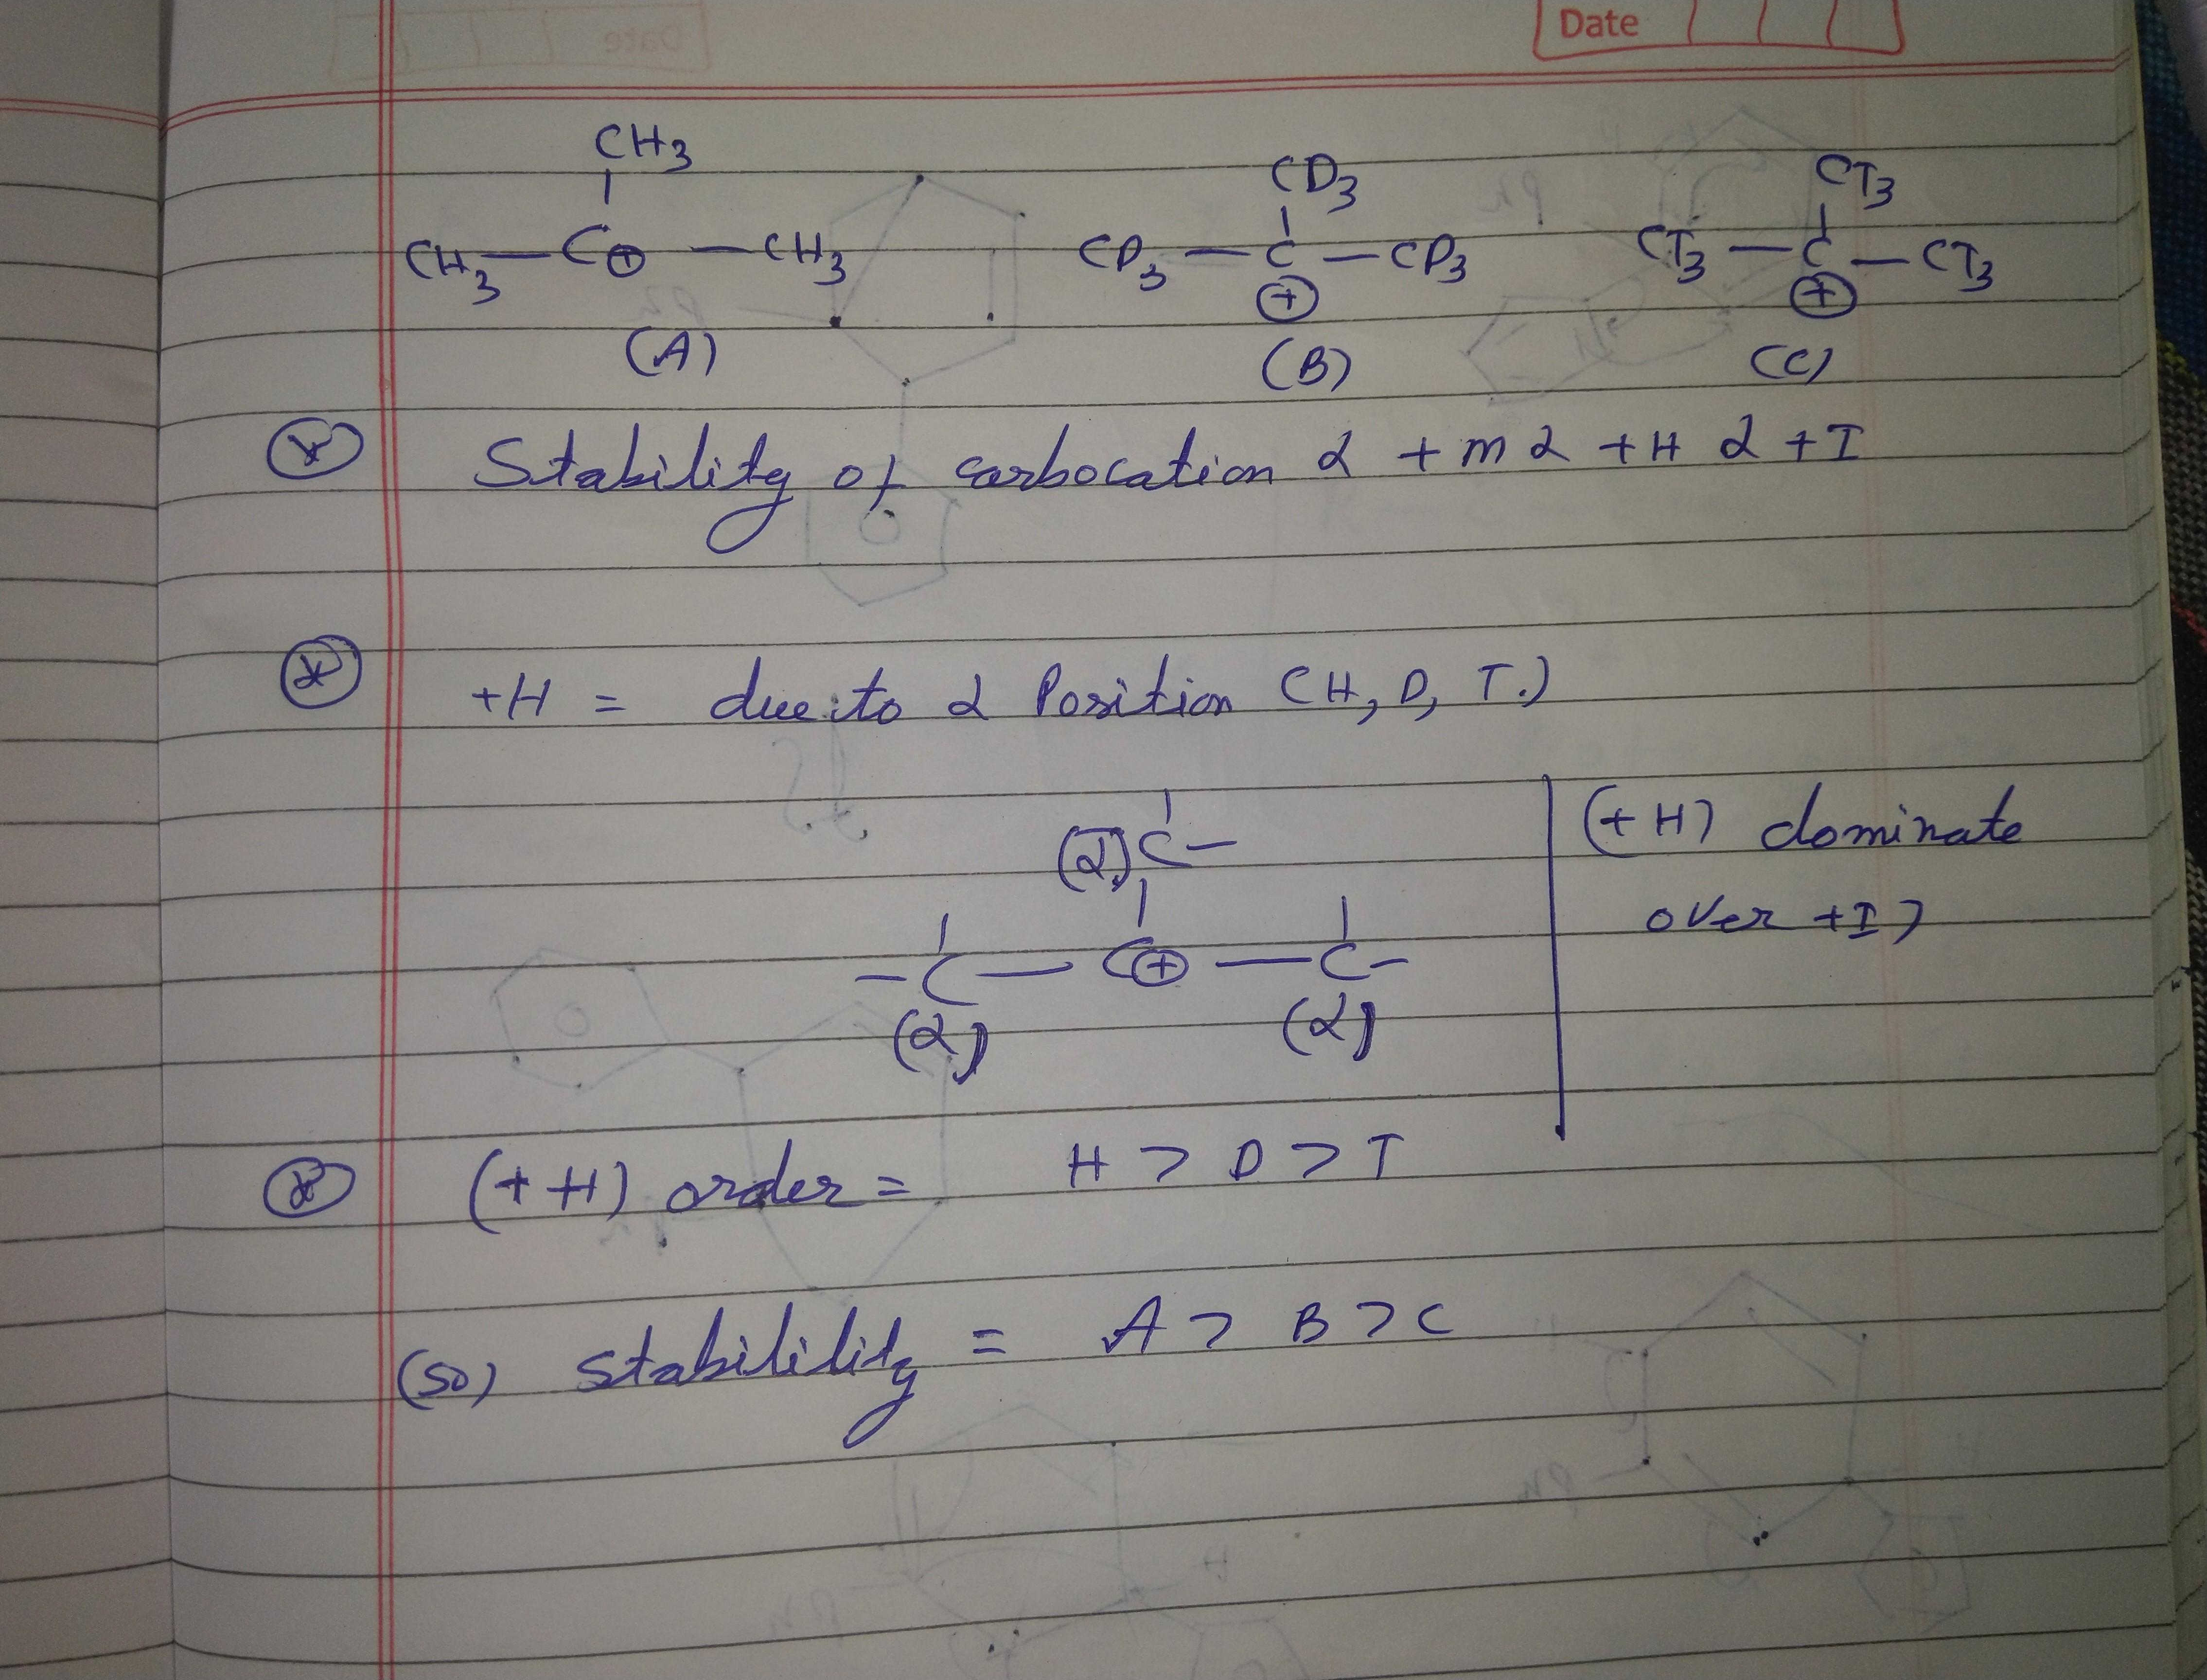 Date
CH3
CH3 — C⊕ — CH3
(A)
CD3
CD3 — C — CD3
⊕
(B)
CT3
CT3 — C — CT3
⊕
(C)
Stability of carbocation α +m α +H α +I
+H = due to α Position (H, D, T.)
(α) C –
– C — C⊕ — C –
(α) (α)
(+H) dominate
over +I)
(+H) order = H > D > T
(so) stabilility = A > B > C